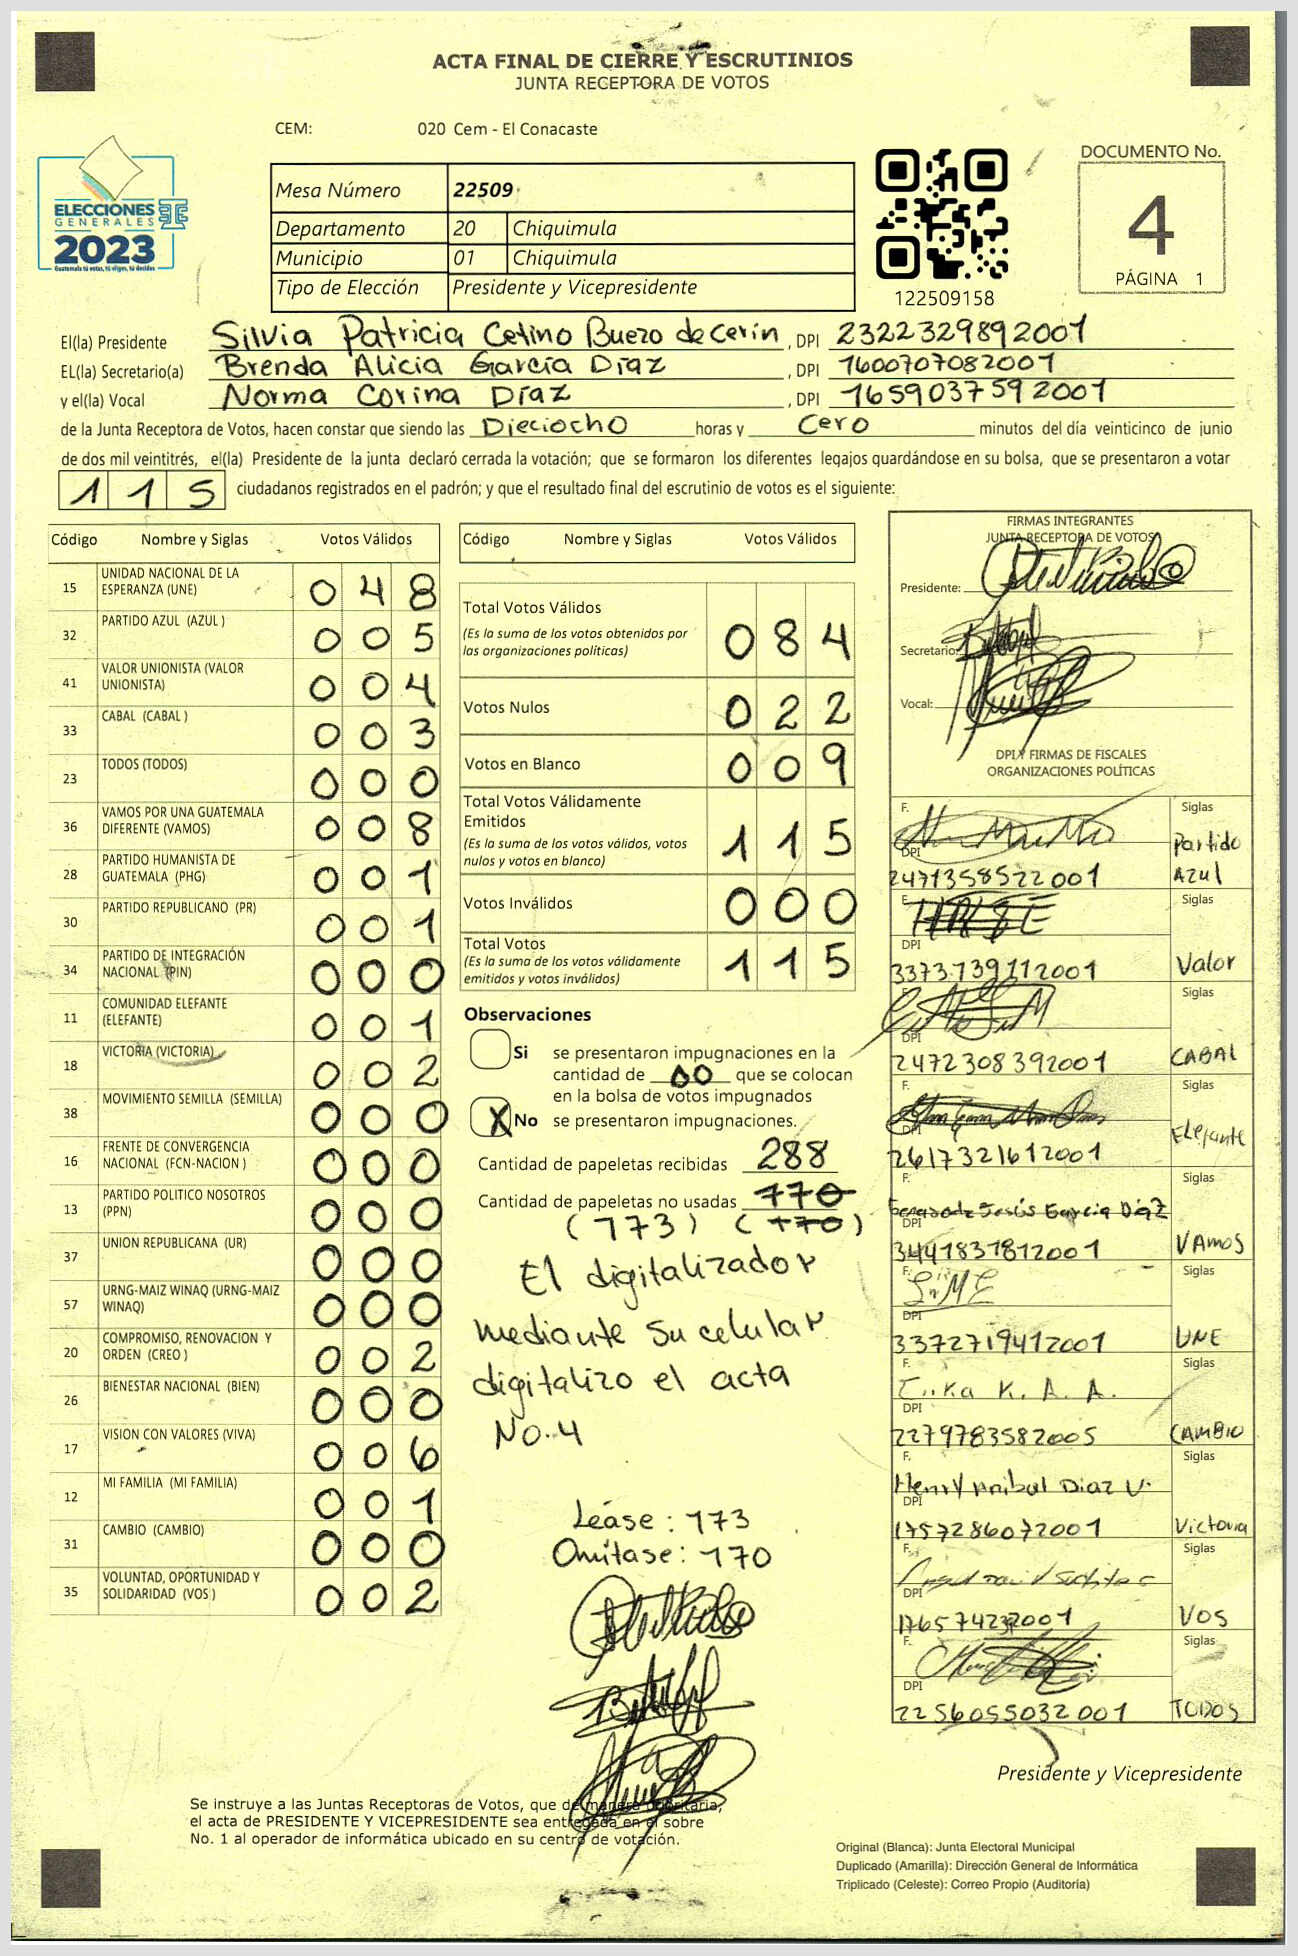 ACTA FINAL DE CIERRE Y ESCRUTINIOS
JUNTA RECEPTORA DE VOTOS
CEM: 020 Cem - El Conacaste
ELECCIONES
GENERALES
2023
Guatemala tú votas, tú eliges, tú decides
Mesa Número 22509
Departamento 20 Chiquimula
Municipio 01 Chiquimula
Tipo de Elección Presidente y Vicepresidente
122509158
DOCUMENTO No.
4
PÁGINA 1
El(la) Presidente Silvia Patricia Cetino Buezo de Cerin, DPI 2322329892001
EL(la) Secretario(a) Brenda Alicia García Díaz, DPI 1600707082001
y el(la) Vocal Norma Corina Díaz, DPI 1659037592001
de la Junta Receptora de Votos, hacen constar que siendo las Dieciocho horas y Cero minutos del día veinticinco de junio
de dos mil veintitrés, el(la) Presidente de la junta declaró cerrada la votación; que se formaron los diferentes legajos guardándose en su bolsa, que se presentaron a votar
115 ciudadanos registrados en el padrón; y que el resultado final del escrutinio de votos es el siguiente:
Código Nombre y Siglas Votos Válidos
15 UNIDAD NACIONAL DE LA ESPERANZA (UNE) 0 4 8
32 PARTIDO AZUL (AZUL ) 0 0 5
41 VALOR UNIONISTA (VALOR UNIONISTA) 0 0 4
33 CABAL (CABAL ) 0 0 3
23 TODOS (TODOS) 0 0 0
36 VAMOS POR UNA GUATEMALA DIFERENTE (VAMOS) 0 0 8
28 PARTIDO HUMANISTA DE GUATEMALA (PHG) 0 0 1
30 PARTIDO REPUBLICANO (PR) 0 0 1
34 PARTIDO DE INTEGRACIÓN NACIONAL (PIN) 0 0 0
11 COMUNIDAD ELEFANTE (ELEFANTE) 0 0 1
18 VICTORIA (VICTORIA) 0 0 2
38 MOVIMIENTO SEMILLA (SEMILLA) 0 0 0
16 FRENTE DE CONVERGENCIA NACIONAL (FCN-NACION ) 0 0 0
13 PARTIDO POLITICO NOSOTROS (PPN) 0 0 0
37 UNION REPUBLICANA (UR) 0 0 0
57 URNG-MAIZ WINAQ (URNG-MAIZ WINAQ) 0 0 0
20 COMPROMISO, RENOVACION Y ORDEN (CREO ) 0 0 2
26 BIENESTAR NACIONAL (BIEN) 0 0 0
17 VISION CON VALORES (VIVA) 0 0 6
12 MI FAMILIA (MI FAMILIA) 0 0 1
31 CAMBIO (CAMBIO) 0 0 0
35 VOLUNTAD, OPORTUNIDAD Y SOLIDARIDAD (VOS ) 0 0 2
Código Nombre y Siglas Votos Válidos
Total Votos Válidos 0 8 4
(Es la suma de los votos obtenidos por
las organizaciones políticas)
Votos Nulos 0 2 2
Votos en Blanco 0 0 9
Total Votos Válidamente
Emitidos 1 1 5
(Es la suma de los votos válidos, votos
nulos y votos en blanco)
Votos Inválidos 0 0 0
Total Votos 1 1 5
(Es la suma de los votos válidamente
emitidos y votos inválidos)
Observaciones
Si se presentaron impugnaciones en la
cantidad de 00 que se colocan
en la bolsa de votos impugnados
X No se presentaron impugnaciones.
Cantidad de papeletas recibidas 288
Cantidad de papeletas no usadas 170
(173) (170)
El digitalizador
mediante su celular
digitalizo el acta
No. 4
Léase: 173
Omítase: 170
FIRMAS INTEGRANTES
JUNTA RECEPTORA DE VOTOS
Presidente:
Secretario:
Vocal:
DPI Y FIRMAS DE FISCALES
ORGANIZACIONES POLÍTICAS
F. Siglas
DPI Partido
2471358522001 Azul
F. Siglas
DPI
3373739112001 Valor
F. Siglas
DPI
2472308392001 CABAL
F. Siglas
DPI Elefante
2617321612001
F. Siglas
Jesús García Díaz
DPI
3441831812001 VAMOS
F. Siglas
DPI
3372719412001 UNE
F. Siglas
K. A. A.
DPI
2279783582005 CAMBIO
F. Siglas
Henry Anibal Diaz V.
DPI
1757286072001 Victoria
F. Siglas
DPI
VOS
F. Siglas
DPI
2256055032001 TODOS
Presidente y Vicepresidente
Se instruye a las Juntas Receptoras de Votos, que de manera prioritaria,
el acta de PRESIDENTE Y VICEPRESIDENTE sea entregada en el sobre
No. 1 al operador de informática ubicado en su centro de votación.
Original (Blanca): Junta Electoral Municipal
Duplicado (Amarilla): Dirección General de Informática
Triplicado (Celeste): Correo Propio (Auditoría)